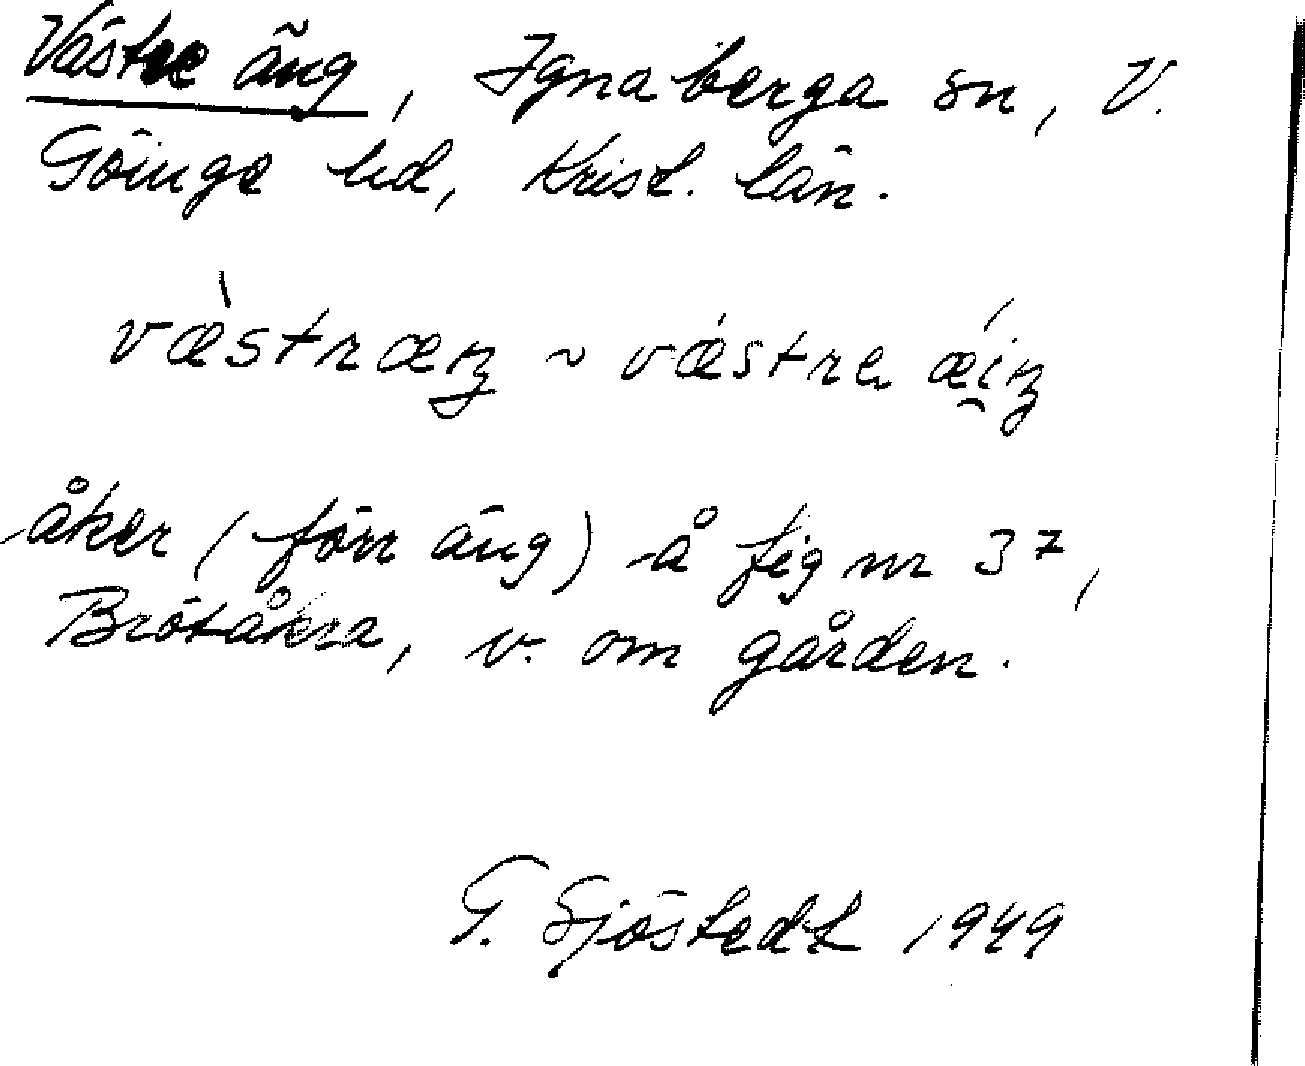 Västre äng, Ignaberga sn, V.
Göinge hd, Krist. län.
væ̀stræŋ ~ vǽstre ǽi̯ŋ
åker (förr äng) å fig nr 37,
Brötåkra, v. om gården.
G. Sjöstedt 1949